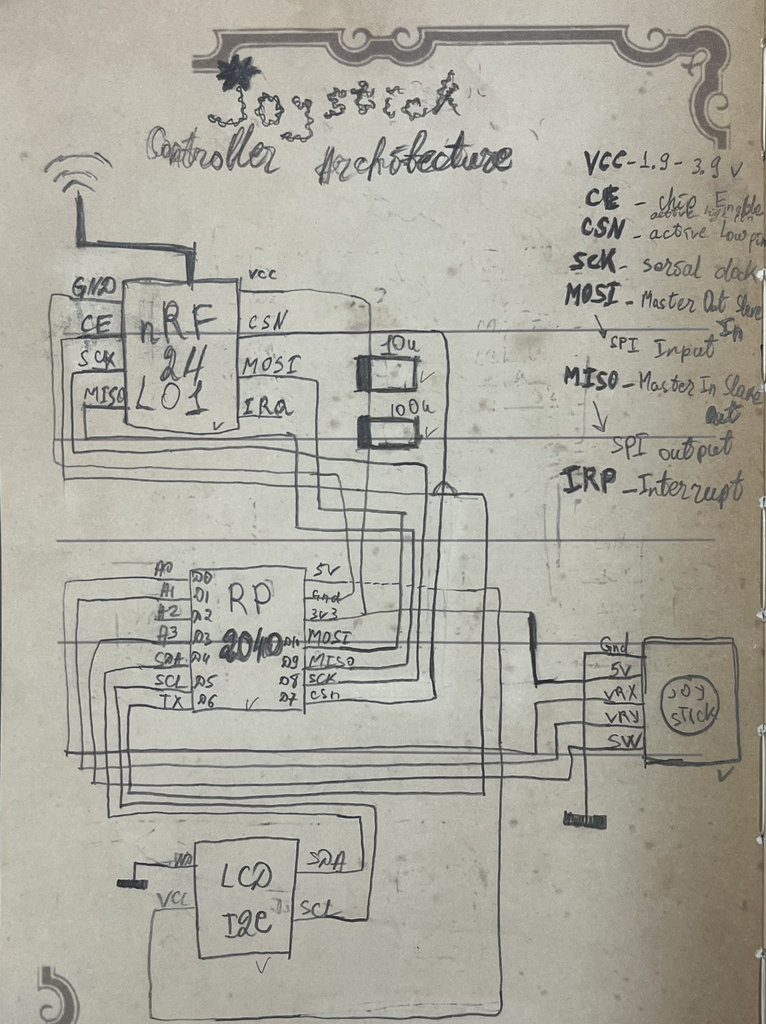 Joystick
Controller Architecture
VCC-1.9-3.9 V
CE - chip Enable
CSN - active Low pin
SCK - serial clock
MOSI - Master Out Slave
In
SPI Input
MISO - Master In Slave
Out
SPI output
IRP - Interrupt
GND
CE
SCK
MISO
nRF
24
L01
VCC
CSN
MOSI
IRQ
10u
100u
A0
A1
A2
A3
SDA
SCL
TX
D0
D1
D2
D3
D4
D5
D6
RP
2040
D10
D9
D8
D7
5V
Gnd
3v3
MOSI
MISO
SCK
CSn
Gnd
5V
VRX
VRY
SW
JOY
STICK
VCC
LCD
I2C
SDA
SCL